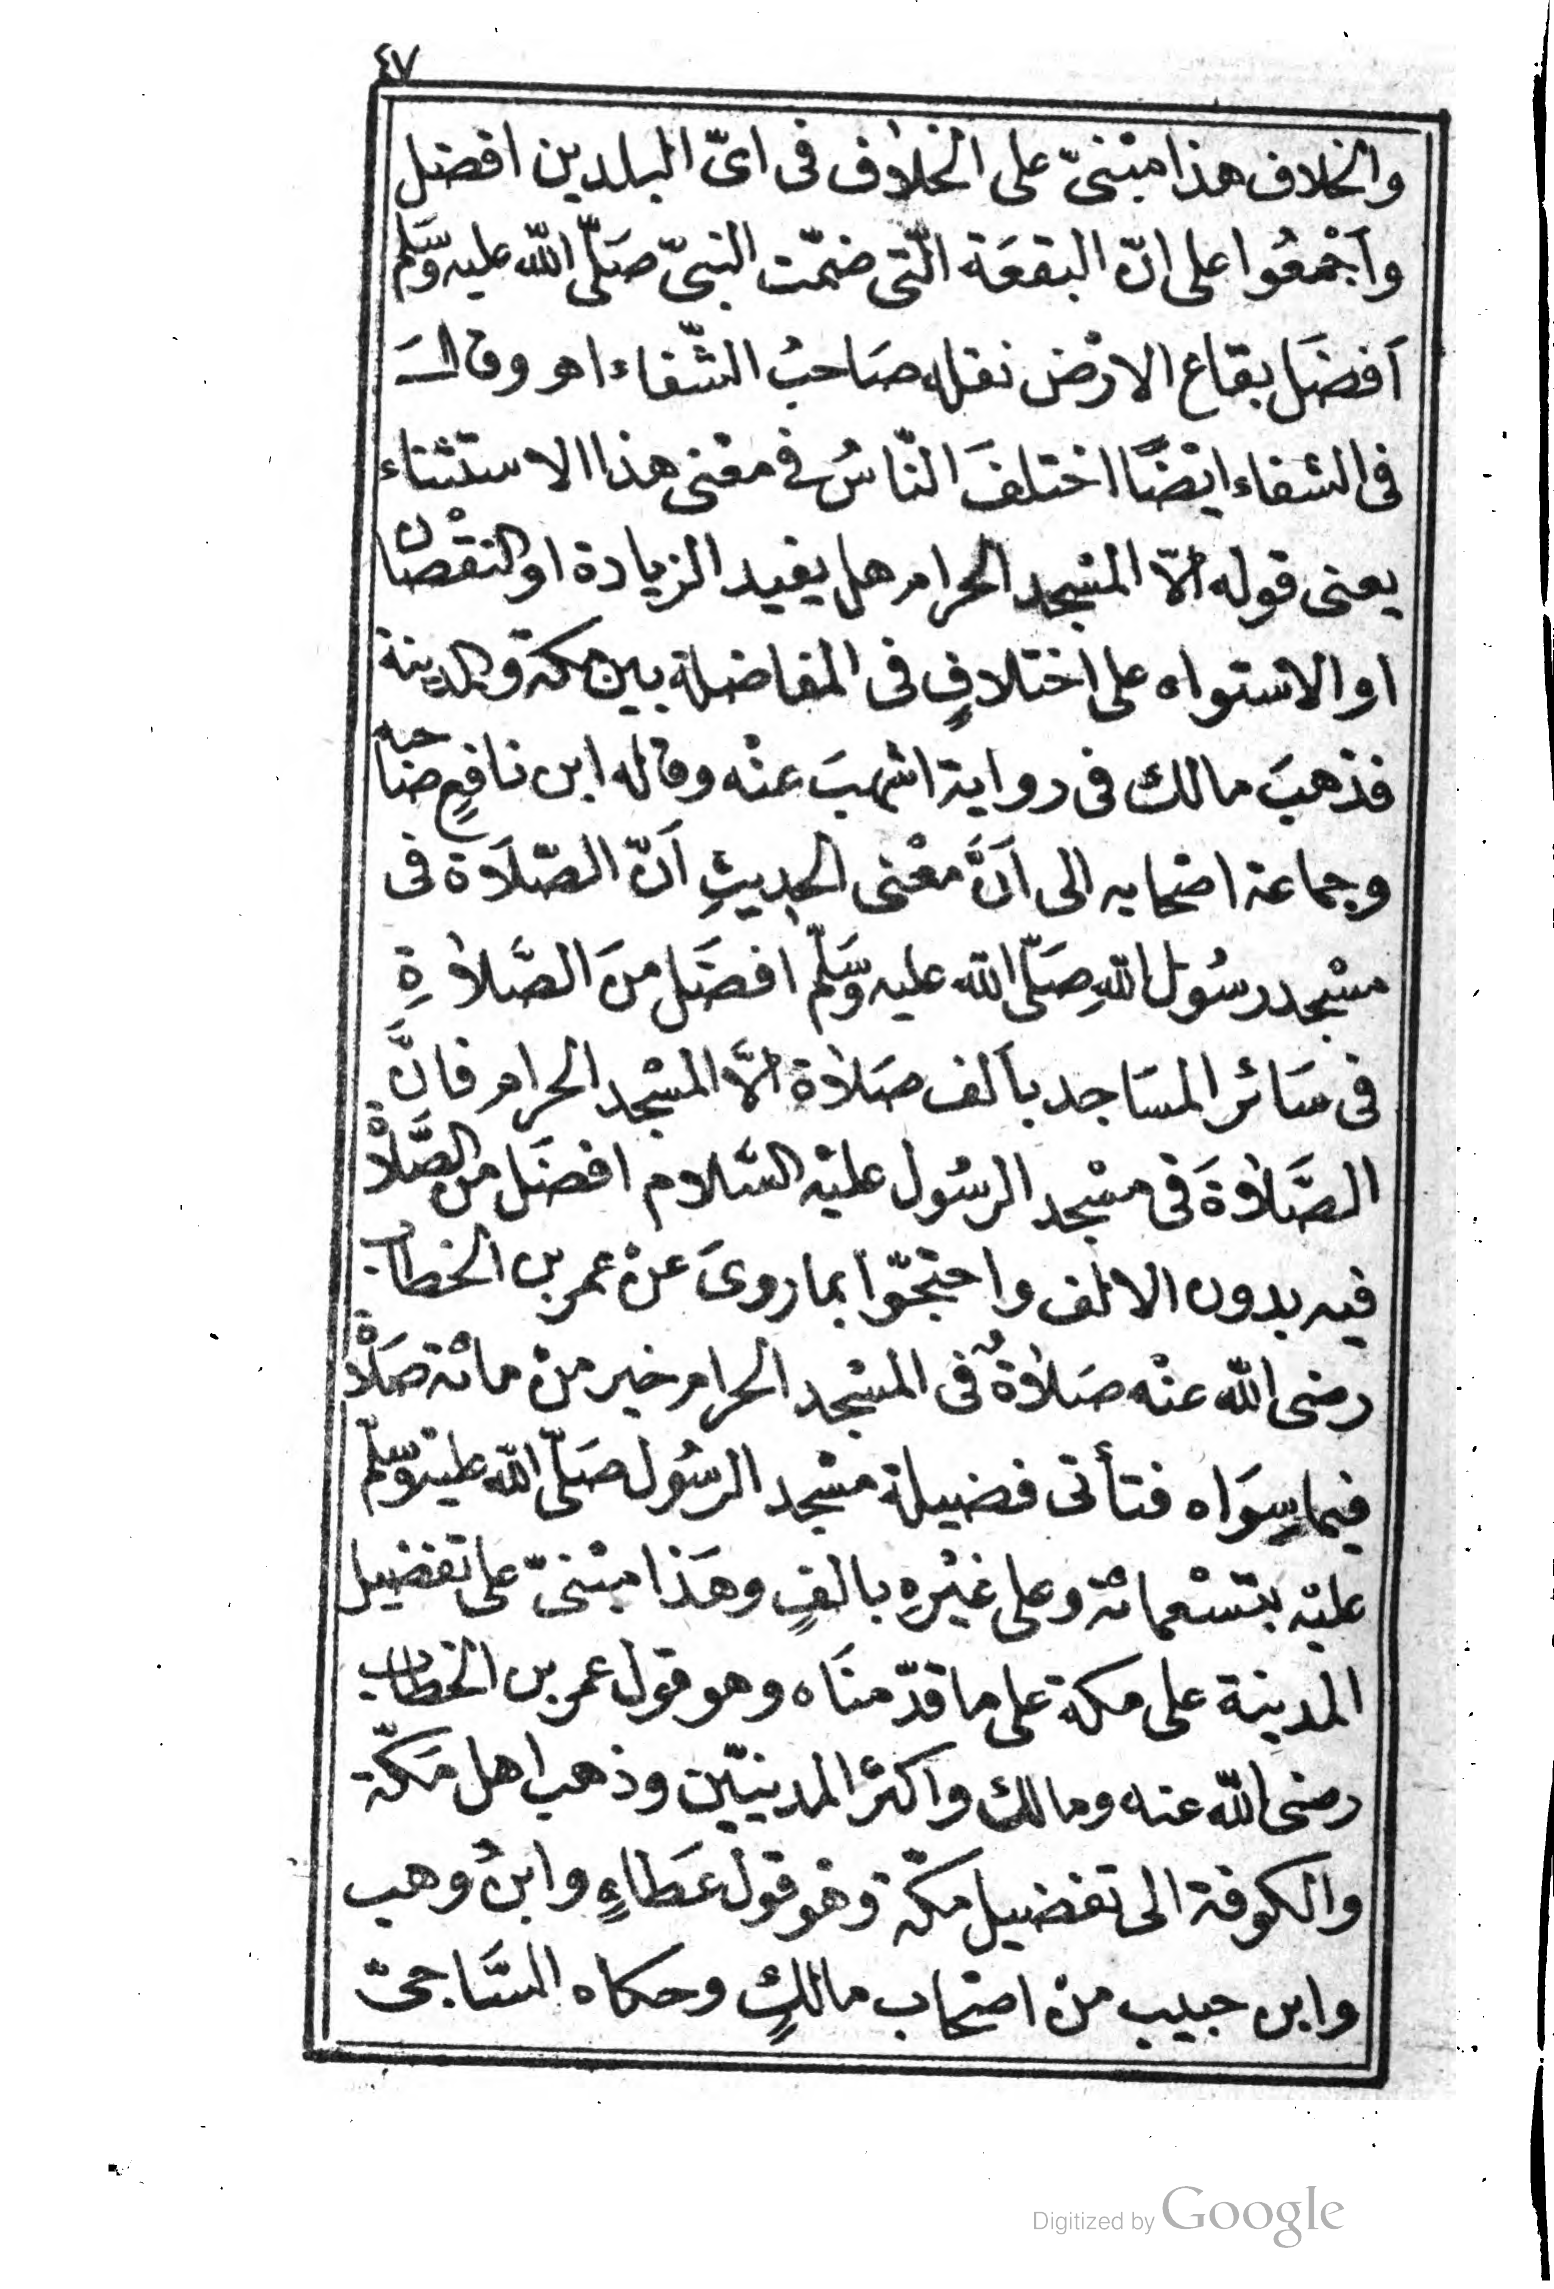 ٤٧
والخلاف هذا مبْنىّ على الخلاف فى اىّ البلدين افضل
وآجْمعُوا على انّ البقعَة الّتى ضمّت النبىّ صَلّى الله عليه وسَلّم
اَفضَل بقاع الارْض نقله صَاحبُ الشّفاء اهـ وقالَ
فى الشفاء ايْضًا اختلفَ النّاسُ فى معْنى هذا الاستثناء
يعنى قوله الّا المسْجد الحرام هل يفيد الزيادة او النقْصان
او الاسْتواء على اختلافٍ فى المفاضلة بين مكة والمدينة
فذهبَ مالك فى رواية اشهبَ عنْه وقاله ابن نافعٍ صَاحبه
وجماعة اصْحابه الى اَنَّ معْنى الحديثِ اَنّ الصّلَاة فى
مسْجد رسُول اللهِ صَلّى الله عليه وسَلّم افضَل منَ الصَّلاةِ
فى سَائر المسَاجد بآلف صَلاة الَّا المسْجد الحرام فانَّ
الصَّلاةَ فى مسْجد الرسُول عليْه السَّلام افضَل من الصَّلاةْ
فيه بدون الالف واحتجّوا بما روىَ عنْ عمر بن الخطاب
رضى الله عنْه صَلاةٌ فى المسْجد الحرام خير منْ مائة صَلاةْ
فيما سِوَاه فتأتى فضيلة مسْجد الرسُول صَلّى الله عليْه وسلّم
عليْه بتسْعمائة وعلى غيْرهِ بالفٍ وهَذا مبْنىّ على تفضيل
المدينة على مكة على ما قدّمنَاه وهو قول عمر بن الخطاب
رضى الله عنه ومالك واكثر المدنيّين وذهب اهل مَكّة
والكوفة الى تفضيل مكّة وهو قول عَطاءٍ وابنُ وهب
وابن حبيب منْ اصْحاب مالكٍ وحكاه السَّاجىّ
Digitized by Google